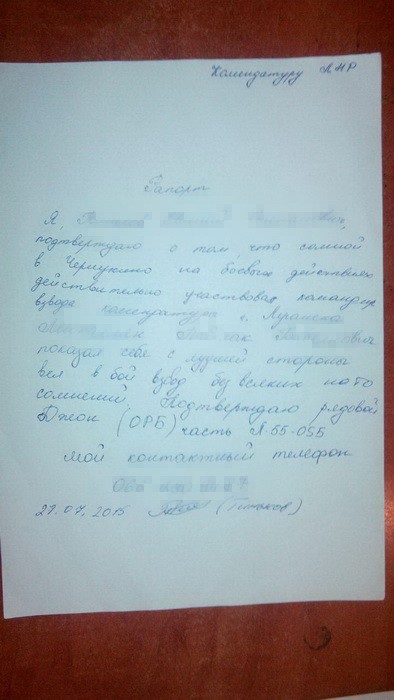 Комендатуру ЛНР
Рапорт
Я,
подтверждаю о том, что сомной
в Чернухино на боевых действиях
действительно участвовал командир
взвода комендатуры г. Луганска
показал себе с лудшей стороны
вел в бой взвод без всяких на то
сомнений Подтверждаю рядовой
Джон (ОРБ) часть А-55-055
мой контактный телефон
27.07.2015